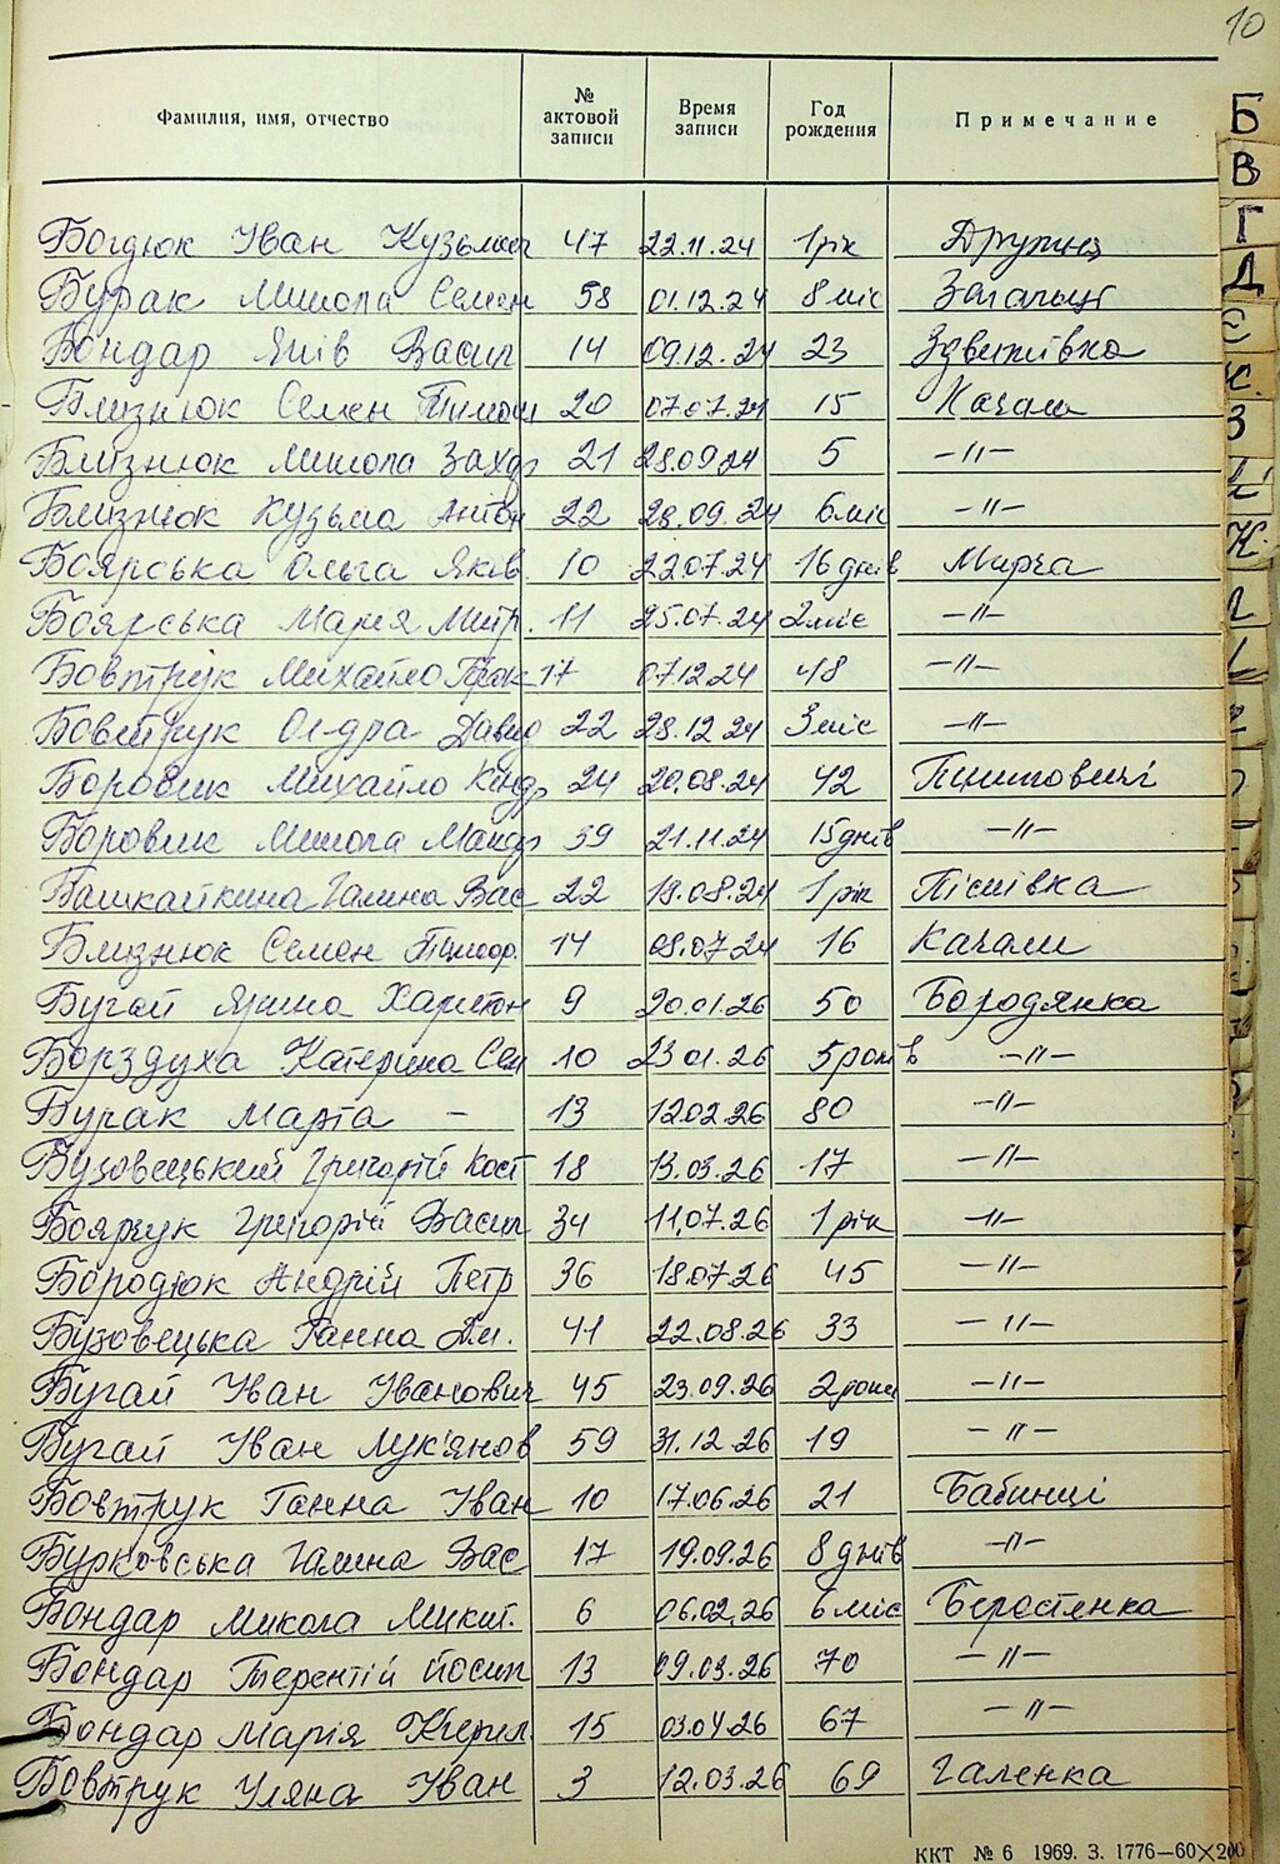 10
Фамилия, имя, отчество № актовой записи Время записи Год рождения Примечание
Богдюк Іван Кузьмич 47 22.11.24 1 рік Дружня
Бурак Микола Семен 58 01.12.24 8 міс Загальці
Бондар Яків Васил 14 09.12.24 23 Здвижівка
Близнюк Семен Тимош 20 07.07.24 15 Качали
Близнюк Микола Захар 21 28.09.24 5 -"-
Близнюк Кузьма Антон 22 28.09.24 6 міс -"-
Боярська Ольга Яків. 10 22.07.24 16 днів Мирча
Боярська Марія Митр. 11 25.07.24 2 міс -"-
Бовтрук Михайло Прок 17 07.12.24 48 -"-
Бовтрук Ол-дра Давид 22 28.12.24 3 міс -"-
Боровик Михайло Кіндр 24 20.08.24 42
Боровик Микола 39 21.11.24 15 днів -"-
Башкайкина Галина Вас 22 19.08.24 1 рік Пісківка
Близнюк Семен 14 08.07.24 16 Качали
Бугай Ярина Харитон 9 20.01.26 50 Бородянка
Борздуха Катерина Сем 10 23.01.26 5 років -"-
Бурак Марта - 13 12.02.26 80 -"-
Бузовецький Григорій Кост 18 13.03.26 17 -"-
Боярчук Григорій Васил 34 11.07.26 1 рік -"-
Бородюк Андрій Петр 36 18.07.26 45 -"-
Бузовецька Ганна Дм. 41 22.08.26 33 -"-
Бугай Іван Іванович 45 23.09.26 2 роки -"-
Бугай Іван Лук'янов 59 31.12.26 19 -"-
Бовтрук Ганна Іван 10 17.06.26 21 Бабинці
Бурковська Галина Вас 17 19.09.26 8 днів -"-
Бондар Микола Микит. 6 06.02.26 6 міс Берестянка
Бондар Терентій Йосип 13 09.03.26 70 -"-
Бондар Марія Кирил. 15 03.04.26 67 -"-
Бовтрук Уляна Іван 3 12.03.26 69 Галенка
ККТ № 6 1969. З. 1776—60×200
Б
В
Г
Д
Є
З
К